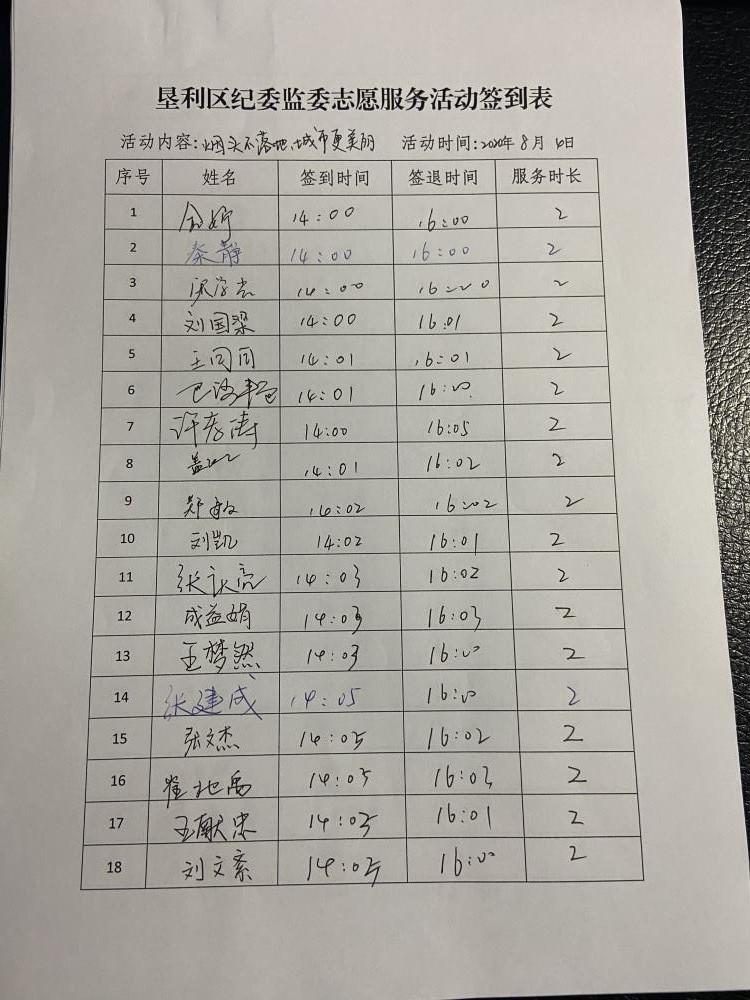 垦利区纪委监委志愿服务活动签到表
活动内容:烟头不落地,城市更美丽 活动时间:2020年8月 日
序号 姓名 签到时间 签退时间 服务时长
1 14:00 16:00 2
2 秦静 14:00 16:00 2
3 14:00 16:00 2
4 刘国梁 14:00 16:01 2
5 王同同 14:01 16:01 2
6 14:01 16:00 2
7 许彦涛 14:00 16:05 2
8 14:01 16:02 2
9 郑敏 14:02 16:02 2
10 刘凯 14:02 16:01 2
11 张永亮 14:03 16:02 2
12 成益娟 14:03 16:03 2
13 王梦然 14:03 16:00 2
14 张建成 14:05 16:00 2
15 张文杰 14:05 16:02 2
16 崔地禹 14:05 16:03 2
17 王献忠 14:05 16:01 2
18 刘文 14:05 16:00 2